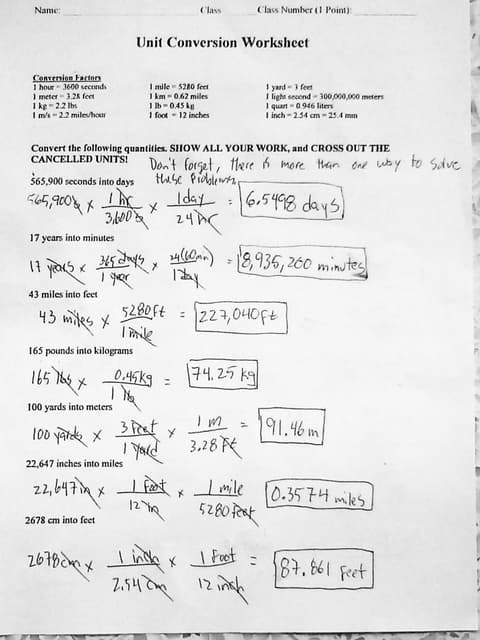 Name: Class Class Number (1 Point):
Unit Conversion Worksheet
Conversion Factors
1 hour = 3600 seconds 1 mile = 5280 feet 1 yard = 3 feet
1 meter = 3.28 feet 1 km = 0.62 miles 1 light second = 300,000,000 meters
1 kg = 2.2 lbs 1 lb = 0.45 kg 1 quart = 0.946 liters
1 m/s = 2.2 miles/hour 1 foot = 12 inches 1 inch = 2.54 cm = 25.4 mm
Convert the following quantities. SHOW ALL YOUR WORK, and CROSS OUT THE
CANCELLED UNITS! Don't forget, there is more than one way to solve
these problems.
565,900 seconds into days
565,900 s × 1 hr / 3,600 s × 1 day / 24 hr = 6.5498 days
17 years into minutes
17 years × 365 days / 1 year × 24(60min) / 1 day = 8,935,200 minutes
43 miles into feet
43 miles × 5280 ft / 1 mile = 227,040 ft
165 pounds into kilograms
165 lbs × 0.45 kg / 1 lb = 74.25 kg
100 yards into meters
100 yards × 3 feet / 1 yard × 1 m / 3.28 ft = 91.46 m
22,647 inches into miles
22,647 in × 1 foot / 12 in × 1 mile / 5280 feet 0.3574 miles
2678 cm into feet
2678 cm × 1 inch / 2.54 cm × 1 foot / 12 inch = 87.861 feet